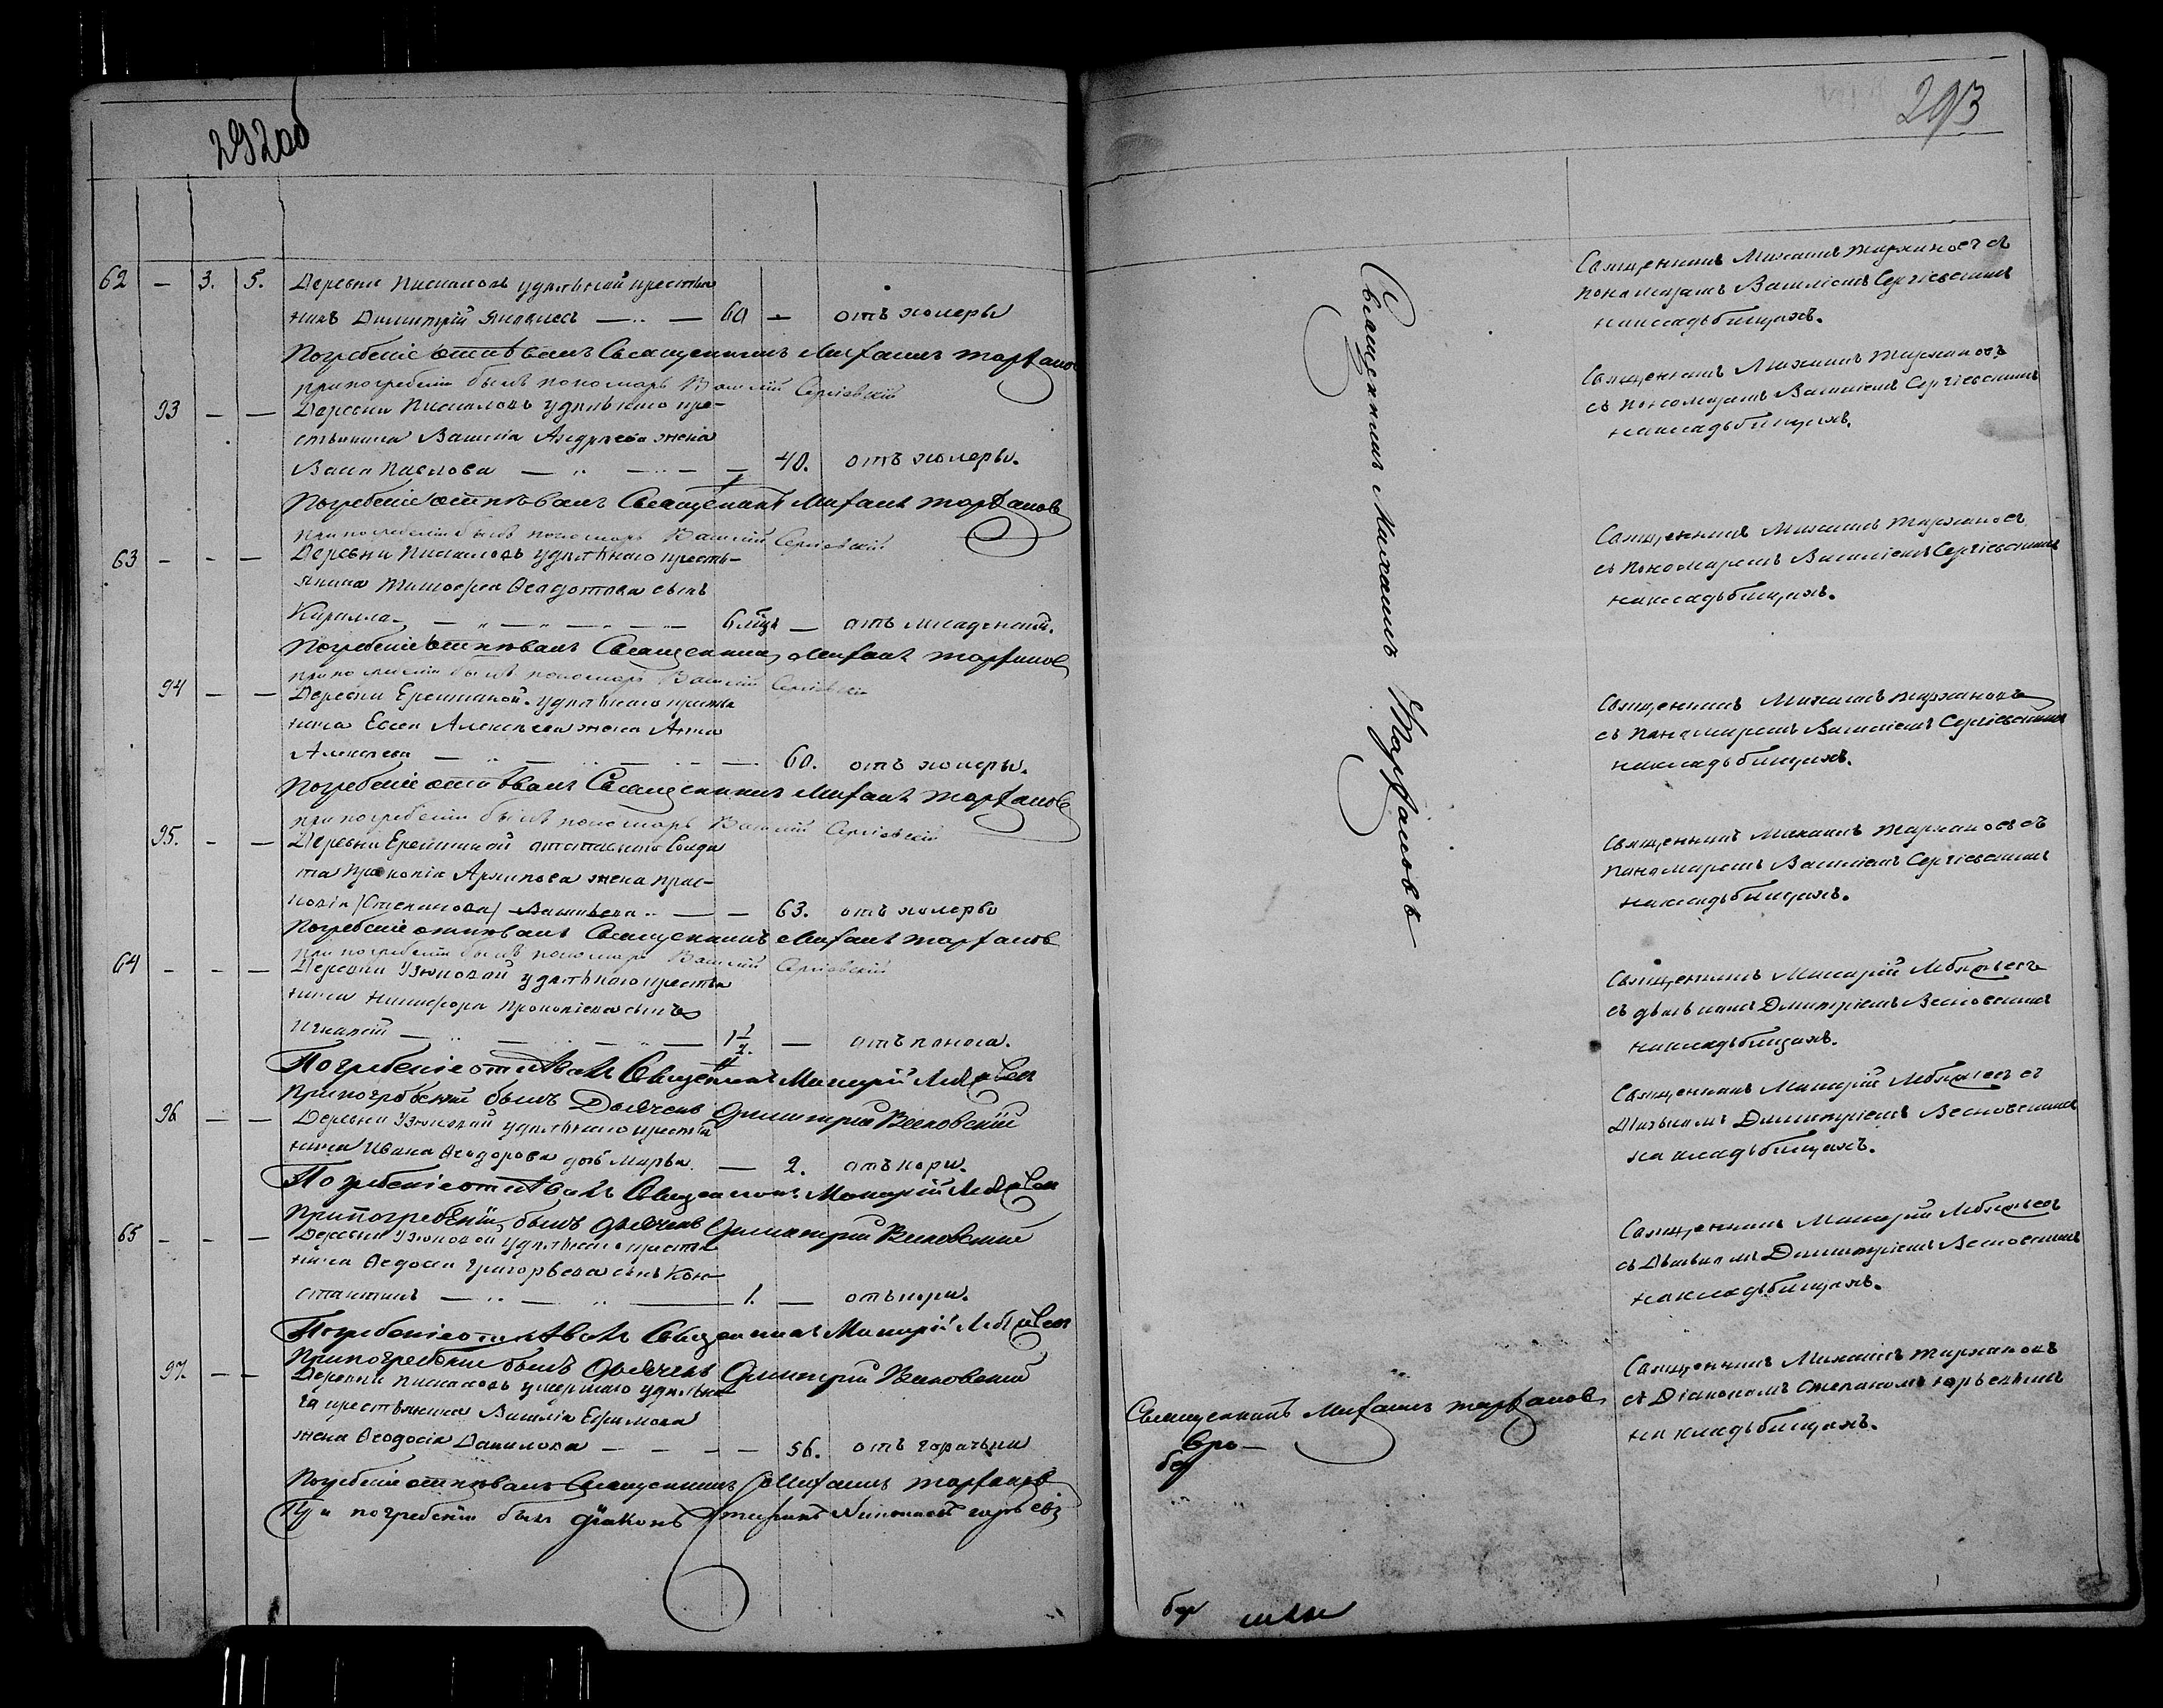 292об
62 — 3. 5. Деревни Пискаловъ удѣльный крестья
нинъ Димитрій Яковлевъ — 60 — отъ холеры
Погребеніе отпѣвалъ Священникъ Михаилъ Тарханов
при погребеніи былъ пономарь Василій Сергіевскій
93 — — Деревни Пискаловъ удѣльнаго кре-
стьянина Василія Андреева жена
Павлова — 40. отъ холеры.
Погребеніе отпѣвалъ Священникъ Михаилъ Тарханов
при погребеніи былъ пономарь Василій Сергіевскій
63 — — — Деревни Пискаловъ удѣльнаго кресть-
янина Тимофея Ѳедотова сынъ
Кирилла — 6 мѣц — отъ младенской.
Погребеніе отпѣвалъ Священникъ Михаилъ Тарханов
при погребеніи былъ пономарь Василій Сергіевскій
94 — — Деревни Еремкиной удѣльнаго крестья
нина Алексѣева жена Анна
Алексѣева — 60. отъ холеры.
Погребеніе отпѣвалъ Священникъ Михаилъ Тарханов
при погребеніи былъ пономарь Василій Сергіевскій
95. — — Деревни Еремкиной отставнаго солда
та Прокопія Архипова жена Прас-
ковія (Степанова) Васильева — 63. отъ холеры
Погребеніе отпѣвалъ Священникъ Михаилъ Тарханов
при погребеніи былъ пономарь Василій Сергіевскій
64 — — — Деревни Узюковой удѣльнаго крестья
нина Никифора Прокопіева сынъ
Игнатій — 1 1/2. — отъ поноса.
Погребеніе отпѣвалъ Священникъ Макарій Лебяжьев
При погребеніи былъ Дьячекъ Димитрій Весновскій
96 — — Деревни Узюковой удѣльнаго крестья
нина Ивана Ѳедорова дочь Марья. — 2. отъ кори.
Погребеніе отпѣвалъ Священникъ Макарій Лебяжьев
При погребеніи былъ Дьячекъ Димитрій Весновскій
65 — — — Деревни Узюковой удѣльнаго крестья
нина Ѳедосія Григорьева сынъ Кон-
стантинъ — 1. — отъ кори.
Погребеніе отпѣвалъ Священникъ Макарій Лебяжьев
При погребеніи былъ Дьячекъ Димитрій Весновскій
97. — — Деревни Пискаловъ умершаго удѣльна
го крестьянина Василія Ефимова
жена Ѳеодосія Данилова — 56. отъ горячьки
Погребеніе отпѣвалъ Священникъ Михаилъ Тарханов
При погребеніи былъ діаконъ
293
Священникъ Михаилъ Тархановъ
Священникъ Михаилъ Тарханов
Священникъ Михаилъ Тархановъ съ
пономаремъ Василіемъ Сергіевскимъ
на кладьбищахъ.
Священникъ Михаилъ Тархановъ
съ пономаремъ Василіемъ Сергіевскимъ
на кладьбищахъ.
Священникъ Михаилъ Тархановъ
съ пономаремъ Василіемъ Сергіевскимъ
на кладьбищахъ.
Священникъ Михаилъ Тархановъ
съ пономаремъ Василіемъ Сергіевскимъ
на кладьбищахъ.
Священникъ Михаилъ Тархановъ съ
пономаремъ Василіемъ Сергіевскимъ
на кладьбищахъ.
Священникъ Макарій Лебяжьевъ
съ дьячькомъ Димитріемъ Весновскимъ
на кладьбищахъ.
Священникъ Макарій Лебяжьевъ съ
Дьячькомъ Димитріемъ Весновскимъ
на кладьбищахъ.
Священникъ Макарій Лебяжьевъ
съ Дьячькомъ Димитріемъ Весновскимъ
на кладьбищахъ.
Священникъ Михаилъ Тархановъ
съ Діакономъ Стефаномъ Юрьевымъ
на кладьбищахъ.